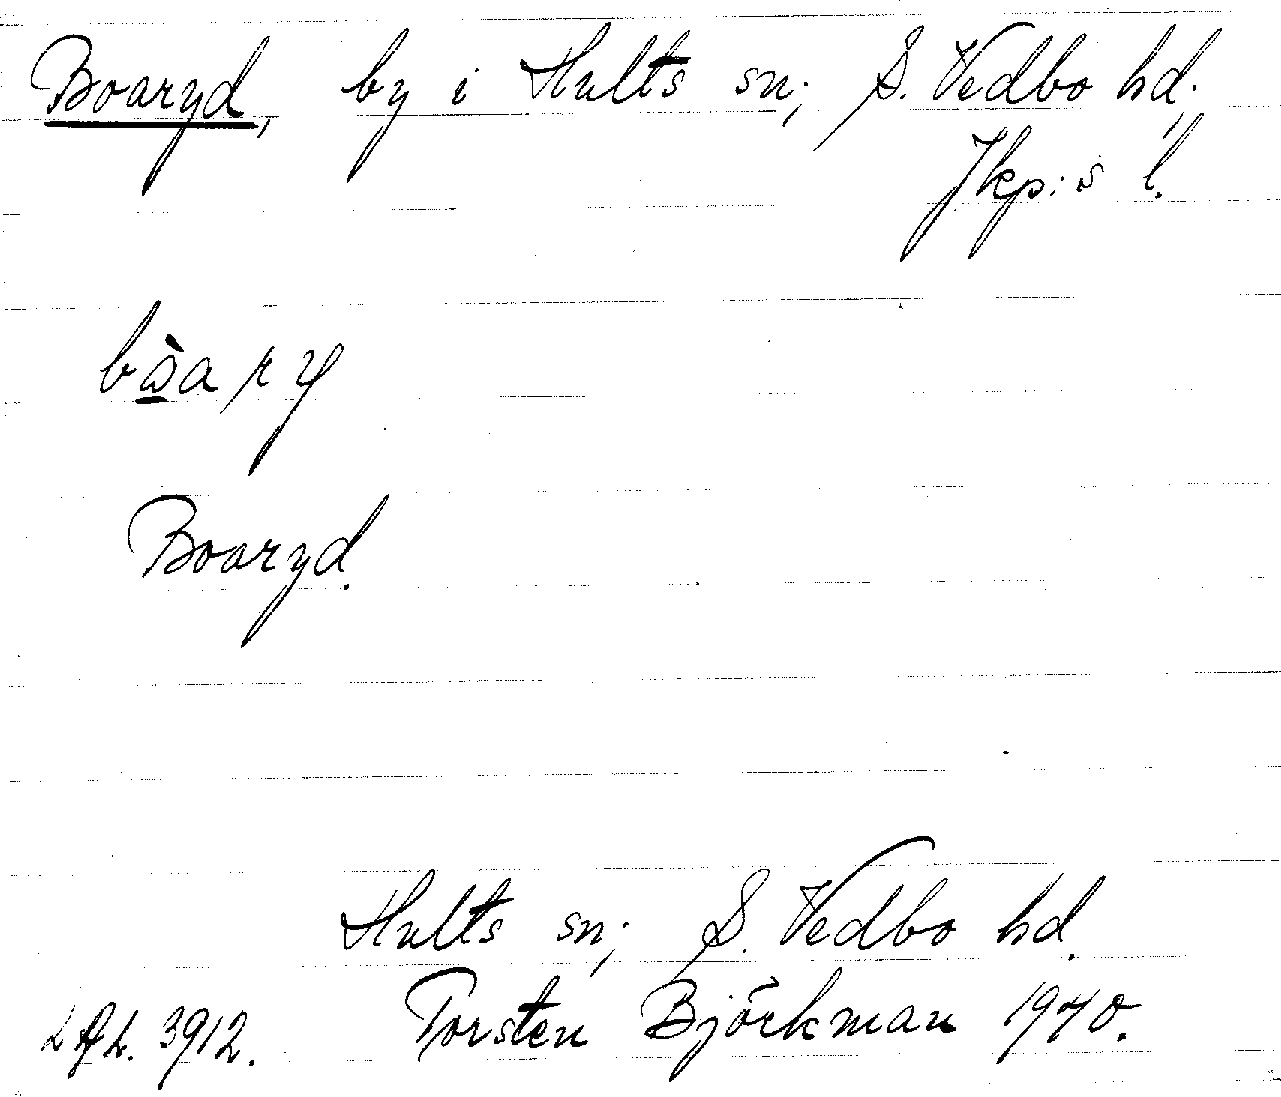 Boaryd, by i Hults sn; S. Vedbo hd;
Jkp:s l.
bòary
Boaryd.
Hults sn; S. Vedbo hd.
Torsten Björkman 1940.
3912.